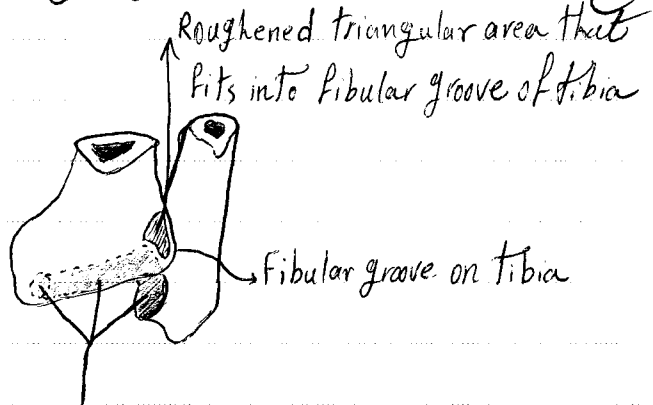 Roughened triangular area that
fits into fibular groove of tibia
Fibular groove on tibia